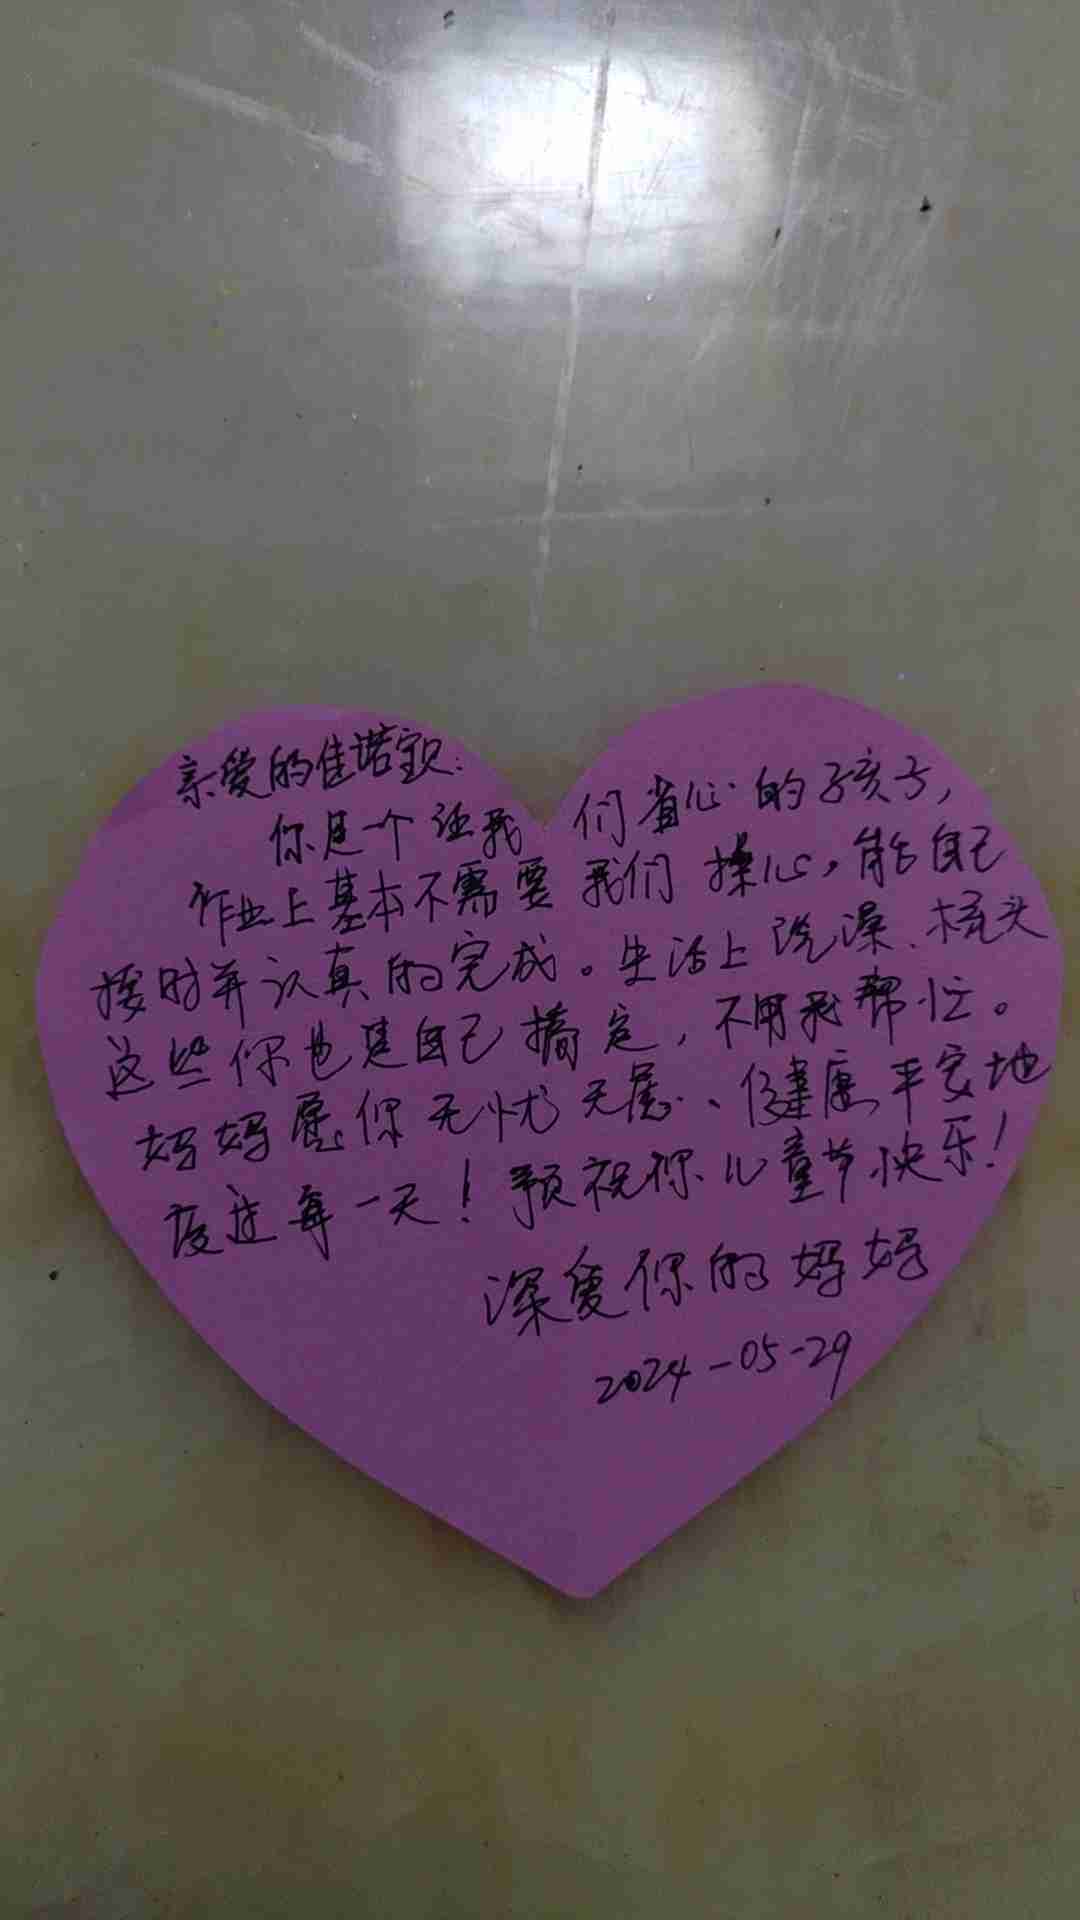 亲爱的佳诺宝贝:
你是一个让我们省心的孩子,
作业上基本不需要我们操心,能自己
按时并认真的完成。生活上洗澡、梳头
这些你也是自己搞定,不用我帮忙。
妈妈愿你无忧无虑、健康平安地
度过每一天!预祝你儿童节快乐!
深爱你的妈妈
2024-05-29